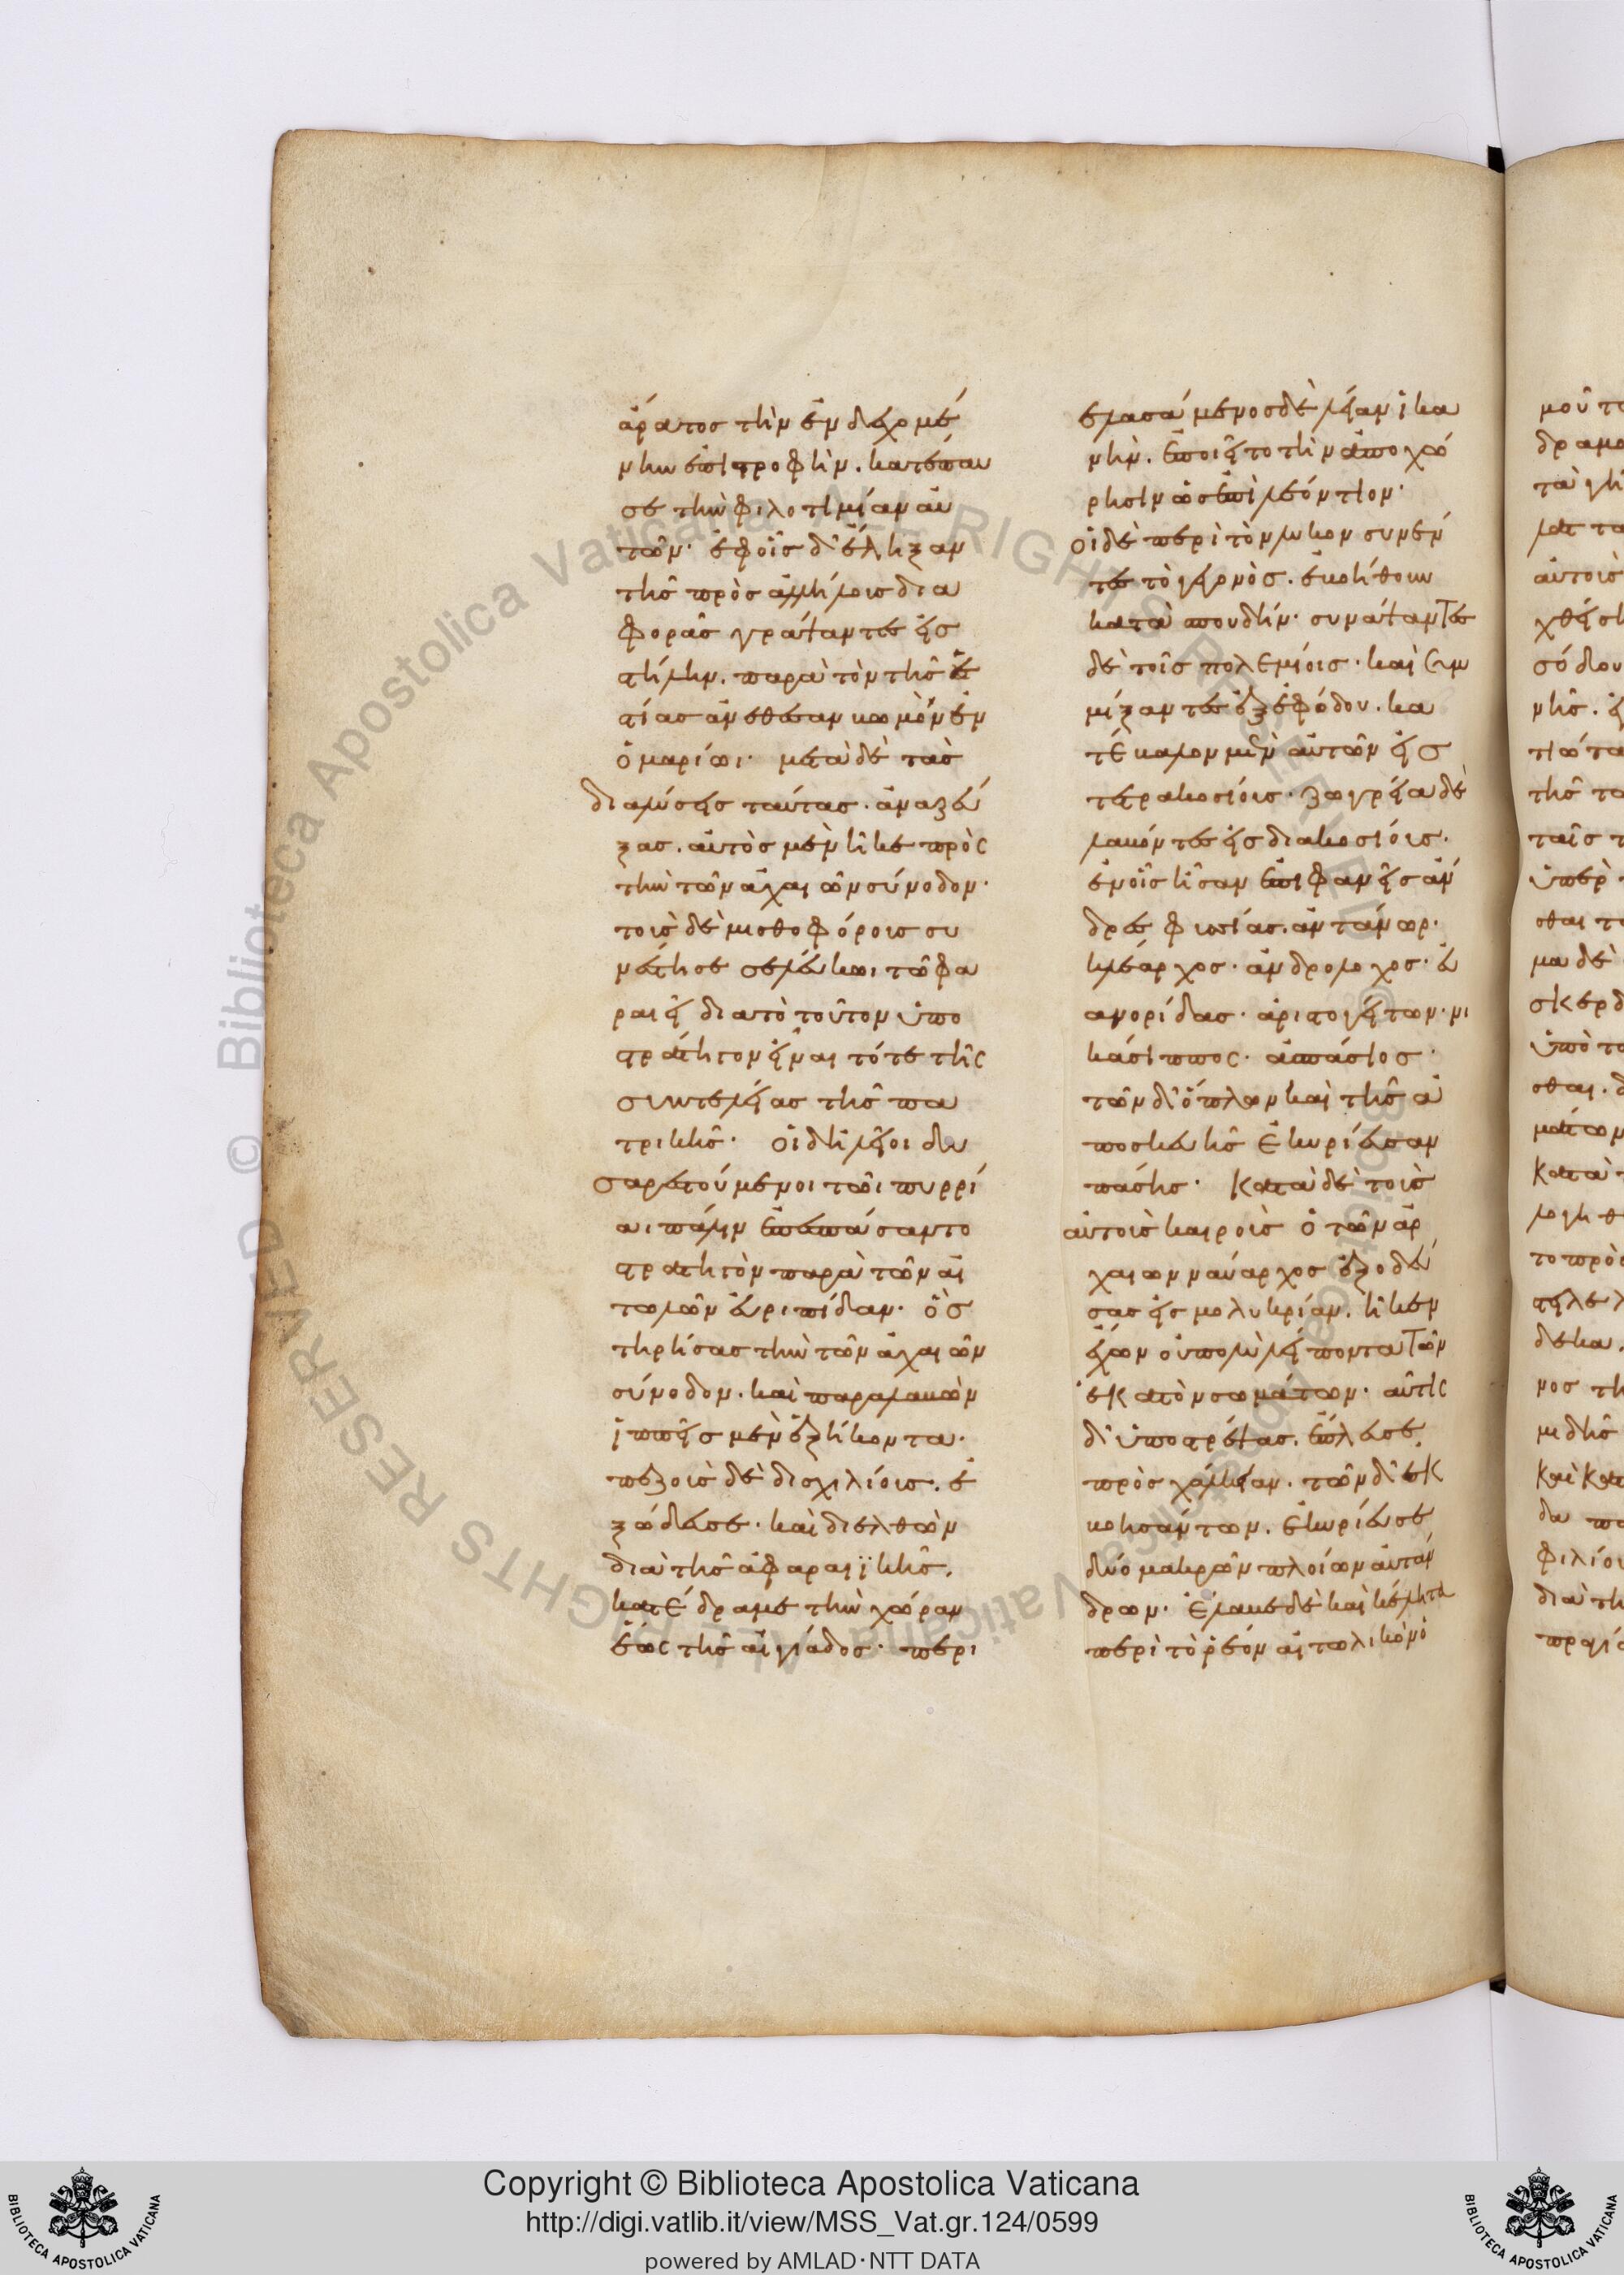 ἄρατος τὴν ἐνδεχομέ
νην ἐπιστροφήν. κατέπαυ
σε τὴν φιλοτιμίαν αὐ
τῶν· ἐφοἷς δ' ἔληξαν
τῆς πρὸς ἀλλήλους δια
φορᾶς γράψαντες εἰς
στήλην. παρὰ τὸν τῆς ἑ
στίας ἀνέθεσαν βωμὸν ἐν
ὁμαρίωι· μετὰ δὲ τὰς
διαλύσεις ταύτας. ἀναζεύ
ξας. αὐτὸς μὲν ἧκε πρὸς
τὴν τῶν ἀχαιῶν σύνοδον·
τοὺς δὲ μισθοφόρους συ
νέστησε λύκωι τῶ φα
ραιεῖ διατὸ τοῦτον ὑπο
στράτηγον εἶναι τότε τῆς
συντελείας τῆς πα
τρικῆς· οἱ δ' ἠλεῖοι δυ
σαρεστούμενοι τῶι πυρρί
αι πάλιν ἐπεσπάσαντο
στρατηγὸν παρὰ τῶν αἰ
τωλῶν εὐριπίδαν· ὃς
τηρήσας τὴν τῶν ἀχαιῶν
σύνοδον. καὶ παραλαβὼν
ἱππεῖς μὲν ἑξήκοντα·
πεζοὺς δὲ δισχιλίους. ἐ
ξώδευσε· καὶ διελθὼν
διὰ τῆς ἀφαραιϊκῆς,
κατέδραμε τὴν χώραν
ἕως τῆς αἰγιάδος· περι
ελασάμενος δὲ λείαν ἱκα
νήν. ἐποιεῖτο τὴν ἀποχώ
ρησιν ὡς ἐπὶ λεόντιον·
οἱ δὲ περὶ τὸν λύκον συνέν
τες τὸ γεγονὸς. ἐβοήθουν
κατὰ σπουδήν· συνάψαντες
δὲ τοῖς πολεμίοις· καὶ συμ
μίξαντες ἐξ ἐφόδου. κα
τέβαλον μὲν αὐτῶν εἰς
τετρακοσίους· ζωγρεία δὲ
λαβόντες εἰς διακοσίους·
ἐν οἷς ἦσαν ἐπιφανεῖς ἄν
δρες φυσίας. ἀντάνωρ·
κλέαρχος· ἀνδρολοχος· εὐ
ανορίδας· ἀριστογείτων· νι
κάσιππος· ἀσπάσιος·
τῶν δ' ὅπλων καὶ τῆς ἀ
ποσκευῆς ἐκυρίευσαν
πάσης· Κατὰ δὲ τοὺς
αὐτοὺς καιροὺς ὁ τῶν ἀρ
χαιων ναύαρχος ἐξοδεύ
σας εἰς μολυκρίαν. ἧκεν
ἔχων οὐπολὺ λείποντα τῶν
ἑκατὸν σωμάτων· αὖτις
δ' ὑποστρέψας. ἔπλευσε
πρὸς χάλκειαν. τῶν δ' ἐκ
βοησάντων. ἐκυρίευσε
δύο μακρῶν πλοίων αὐτάν
δρων· ἔλαβε δὲ καὶ κέλητα
περὶ τὸ ῥέον αἰτωλικὸν ὁ
Copyright © Biblioteca Apostolica Vaticana
http://digi.vatlib.it/view/MSS_Vat.gr.124/0599
powered by AMLAD·NTT DATA